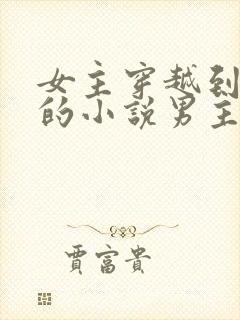 女主穿越到
的小說男主
賈富貴